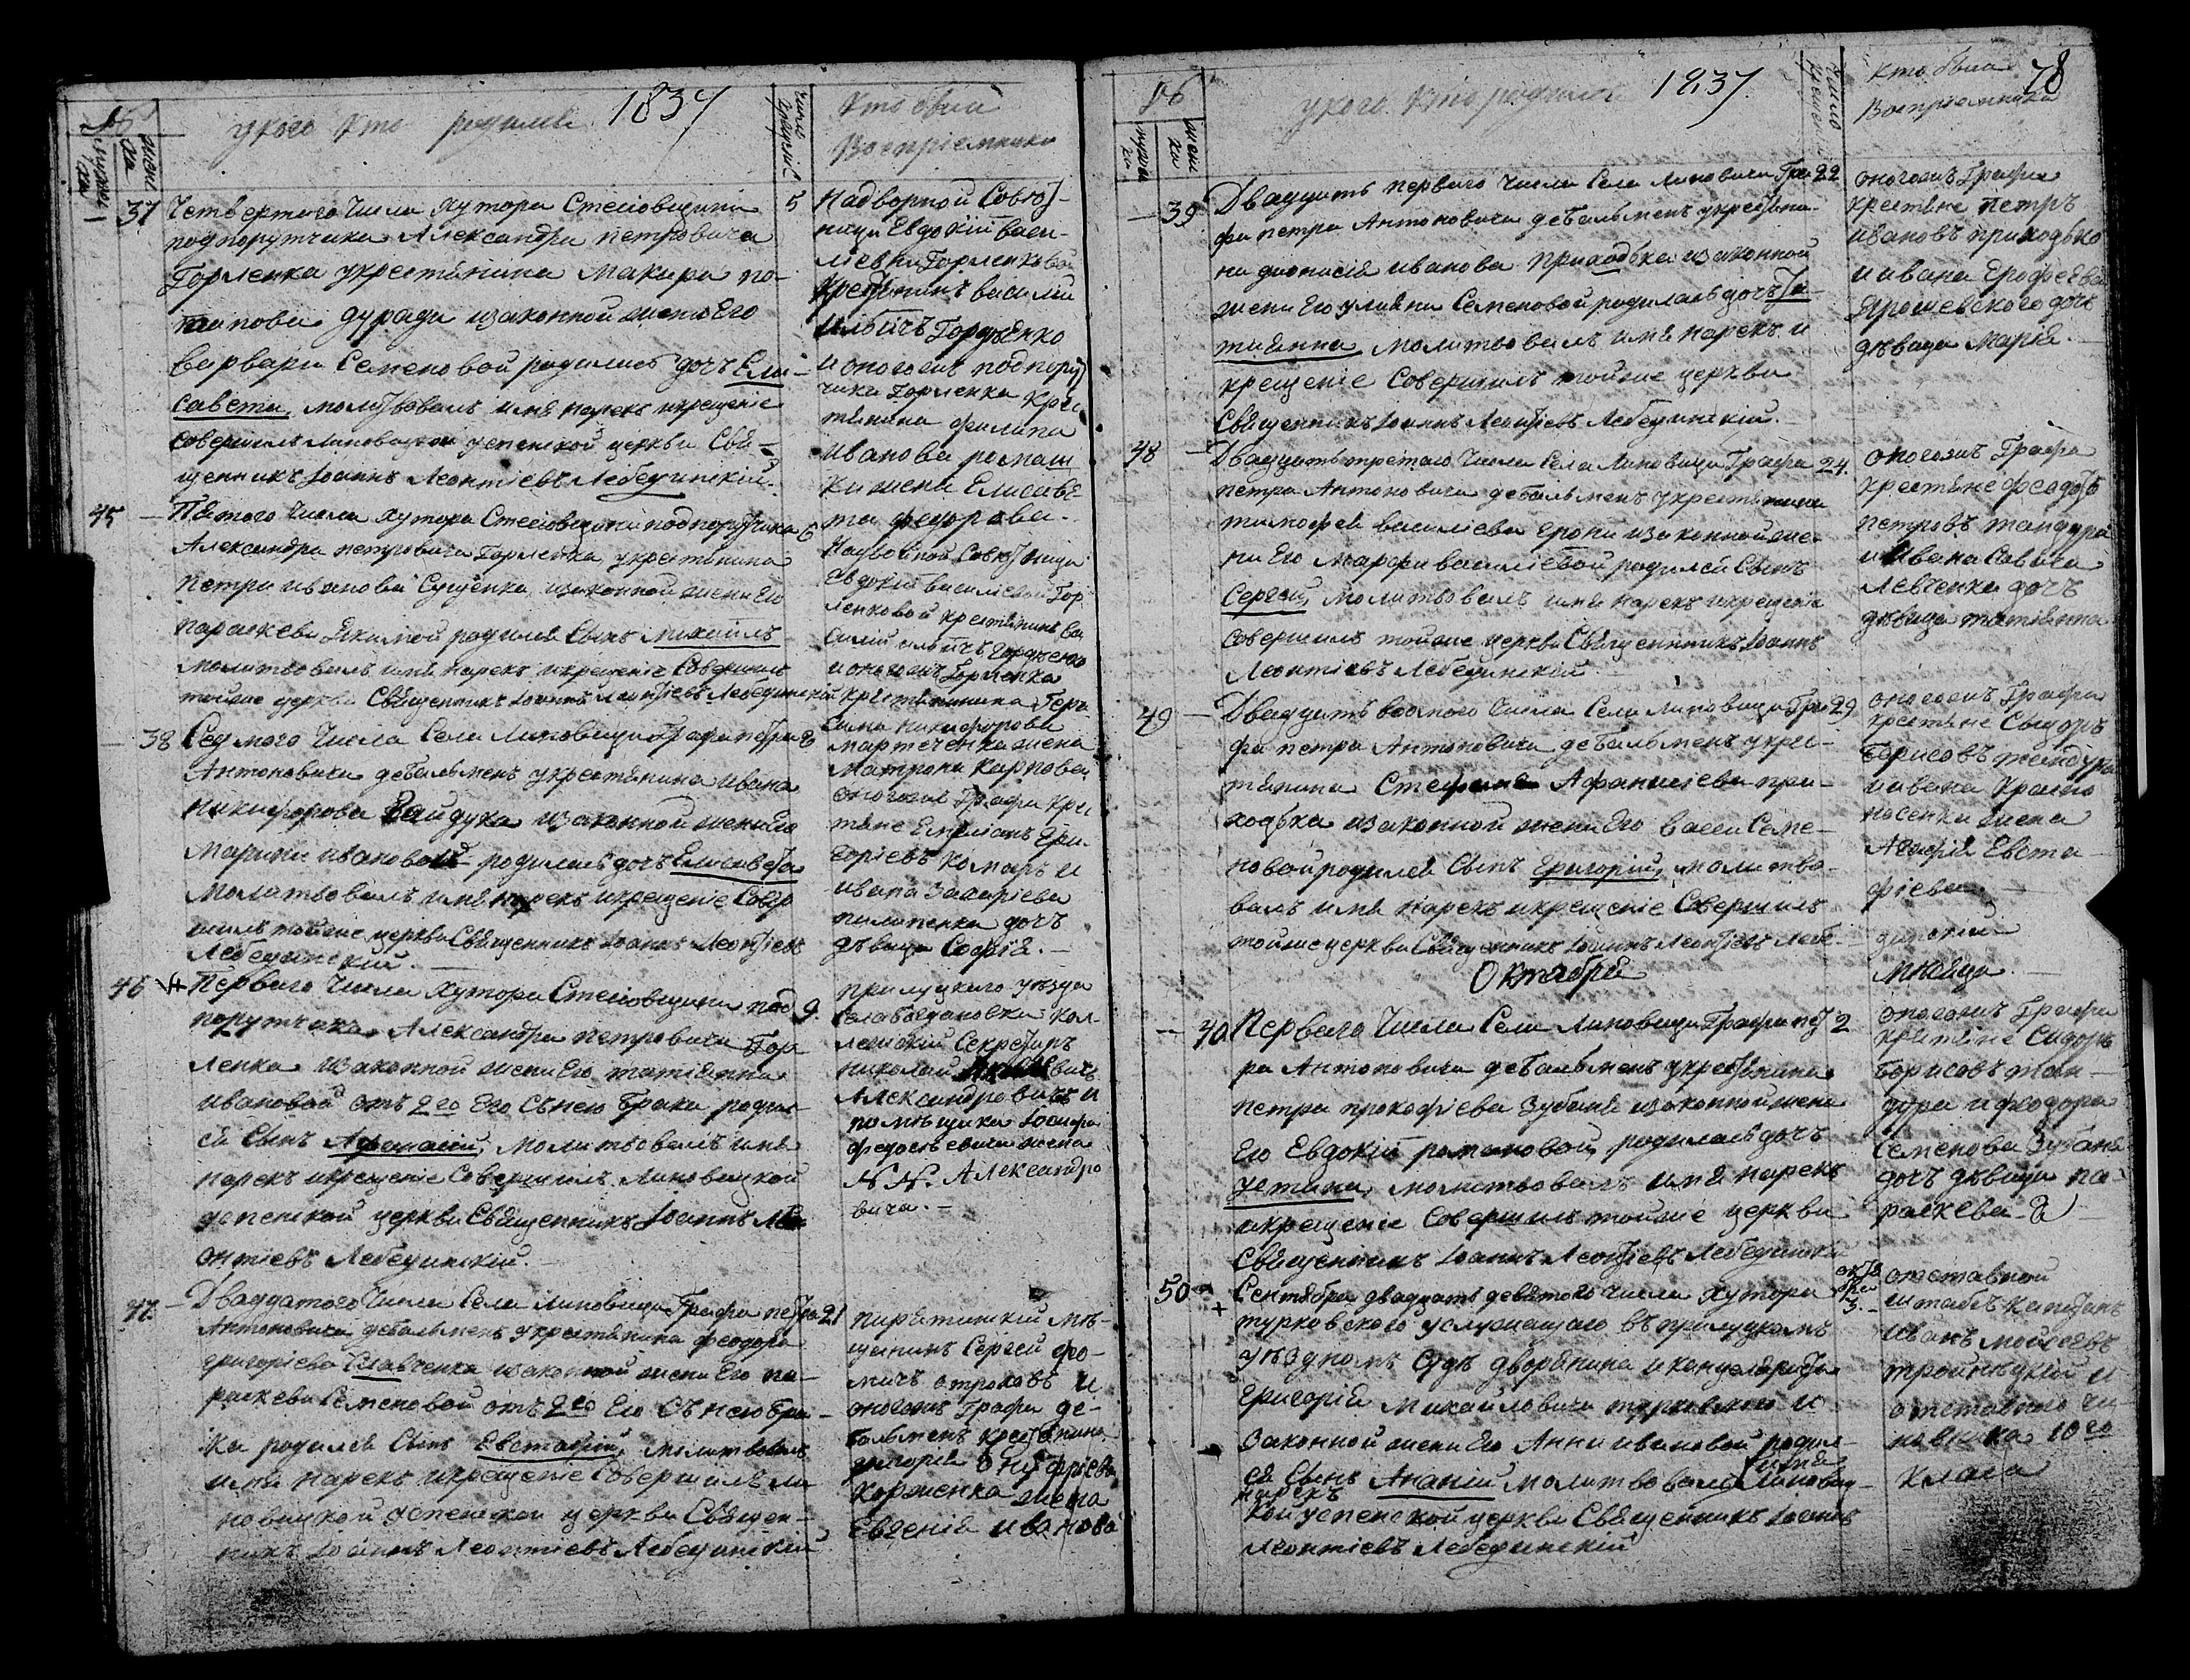 15
мужеска
женска
у кого кто родился
1837
число крещенiя
Кто были
Воспрiемники
37
Четвертого Числа Хутора Стесовщини
подпорутчика Александра петровича
Горленка укрестянина Макара по-
тапова дуради иззаконной жени Его
варвари Семеновой родилась дочъ Ели-
савета, молитвовалъ имя нарекъ икрещенiе
совершилъ линовицкой успенской церкви Свя-
щенникъ Iоаннъ Леонтiевъ Лебединскiй.
5
Надворной Совѣт-
ници Евдокiи васи-
лiевни Горленковой
Крестянинъ василiй
Илличъ Гордѣенко
и оногожъ подпорут
чика Горленка Крес
тянина филипа
Иванова ромаш
ки жена Елисаве
та федорова.
45
Пятого Числа хутора Стесовщини подпорутчика
Александра петровича Горленка укрестянина
петра иванова Сущенка иззаконной жени Его
параскеви Якимой родился Синъ Михаилъ
молитвовалъ имя нарекъ икрещенiе Совершилъ
тойже церкви Священникъ Iоаннъ Леонтiевъ Лебединскiй
6
Надворной Совѣтници
Евдокiи василiевой Гор
ленковой крестянинъ ва
силiй илличъ Гордѣенко
и оногожъ Горленка
крестянина Гера
сима Никифорова
мартеченка жена
Матрона Карпова
38
Седмого Числа Села Линовици Графа петра
Антоновича дебальменъ укрестянина ивана
никифорова Гайдука иззаконной жени Его
марини ивановой родилась дочъ Елисавета
молитвовалъ имя нарекъ икрещенiе Совер
шилъ тойже церкви Священникъ Iоаннъ Леонтiевъ
Лебединскiй.
8
оногожъ Графа крес
тяне Емелiанъ Гри-
горiевъ Комаръ и
ивана Захарiева
пилипенка дочъ
дѣвица Софiя.
46
Первого Числа Хутора Стесовщини под
порутчика Александра петровича Гор
ленка иззаконной жени Его татiянна
ивановой отъ 2го Его Сънею брака родил-
ся Синъ Афанасiй, молитвовалъ имя
нарекъ икрещенiе Совершилъ Линовицкой
успенской церкви Священникъ Iоаннъ Ле-
онтiевъ Лебединскiй.
9.
прилуцкого уѣзда
Села богдановки кол
лежскiй Секретаръ
Николай
Александровичъ и
помѣщика Iосифа
федосѣевича жена
N N. Александро
вича.
47.
Двадцатого Числа Села Линовици Графа петра
Антоновича дебальменъ укрестянина феодора
григорiева Славченка иззаконной жени Его па-
раскеви Семеновой отъ 2го Его Сънею бра-
ка родился Синъ Евстафiй, молитвовалъ
имя нарекъ икрещенiе Совершилъ ли
новицкой успенской церкви Священ-
никъ Iоаннъ Леонтiевъ Лебединскiй
21
пирятинскiй мѣ-
щанинъ Сергей фо-
мичъ отроховъ и
оногожъ Графа де-
бальменъ крестянина
григорiя Онуфрiева
Корженка жена
Евгенiя иванова
16
мужеска
женска
у кого кто родился
1837.
число крещенiя
Кто были
Воспрiемники
78
39
Двадцать первого Числа Села Линовици Гра
фа петра Антоновича дебальменъ укрестяни-
на дионисiя иванова приходька иззаконной
жени Его улияни Семеновой родилась дочъ Та-
тiянна молитвовалъ имя нарекъ и
крещенiе Совершилъ тойже церкви
Священникъ Iоаннъ Леонтiевъ Лебединскiй.
22
оногожъ Графа
крестяне петръ
ивановъ приходько
и ивана Ерофеева
Ярошевского дочъ
дѣвица Марiя.
48
Двадцатьтретого Числа Села Линовици Графа
петра Антоновича дебальменъ укрестянина
тимофея василiева Ерохи иззаконной же-
ни Его Марфи василiевой родился Синъ
Сергей, молитвовалъ имя нарекъ икрещенiе
совершилъ тойже церкви Священникъ Iоаннъ
Леонтiевъ Лебединскiй
24.
оногожъ Графа
крестяне феодотъ
петровъ тандура
и ивана Савича
Левченка дочъ
дѣвица татiянна
49
Двадцать восмого Числа Села Линовици Гра
фа петра Антоновича дебальменъ укрес-
тянина Стефана Афанасiева при-
ходька иззаконной жени Его васси Семе-
новой родился Синъ Григорiй, молитво-
валъ имя нарекъ икрещенiе Совершилъ
тойже церкви Священникъ Iоаннъ Леонтiевъ Лебе-
динскiй
29
оногожъ Графа
крестяне Сидоръ
Борисовъ тандура
и ивана Красно
носенка жена
Агафiя Евста
фiева.
Октября
Мѣсяца
40
Первого Числа Села Линовици Графа пет
ра Антоновича дебальменъ укрестянина
петра прокофiева Зубаня иззаконной жени
Его Евдокiи романовой родилась дочъ
устина, молитвовалъ имя нарекъ
икрещенiе Совершилъ тойже церкви
Священникъ Iоаннъ Леонтiевъ Лебединскiй
2
оногожъ Графа
крестяне Сидоръ
Борисовъ тан-
дура и феодора
Семенова Зубаня
дочъ дѣвица па-
раскева
50
Сентября двадцать девятого Числа Хутора
турковского услужащаго въ прилуцкомъ
уѣздномъ Судѣ дворянина и канцеляриста
григорiя Михайловича турковского и
Законной жени Его Анни ивановой родил-
ся Синъ Ананiй молитвовалъ имя Линовиц-
нарекъ
кой успенской церкви Священникъ Iоаннъ
Леонтiевъ Лебединскiй
октя
бря
3.
отставной
штабсъ Капитанъ
Иванъ Мойсеевъ
тройнѣцкiй и
отставного чи-
новника 10го
класа